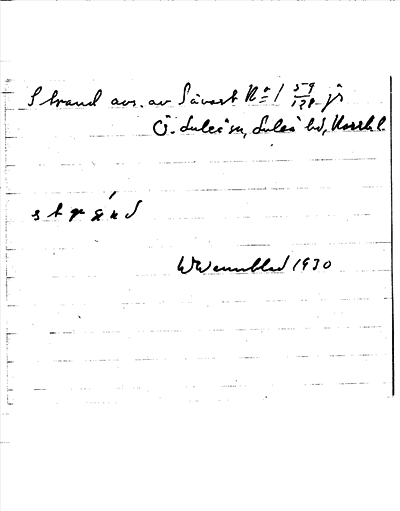 Strand avs. av Sävast № 1 59/128 jr
Ö. Luleå sn, Luleå hd, Norrb. l.
strand
W Wennblad 1930